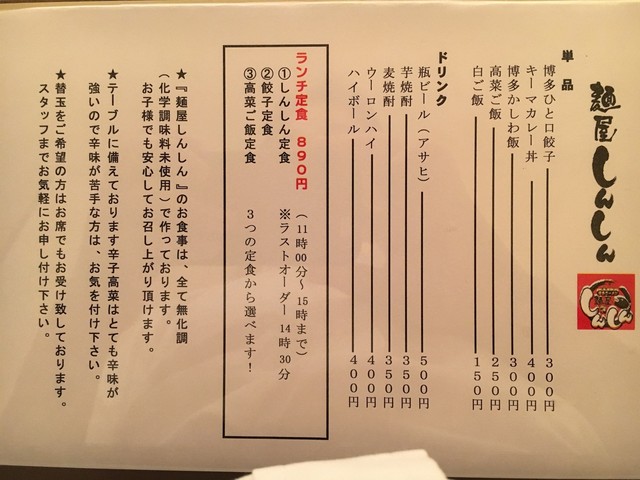 麺屋しんしん
麺屋
しんしん
単品
博多ひと口餃子 300円
キーマカレー丼 400円
博多かしわ飯 300円
高菜ご飯 250円
白ご飯 150円
ドリンク
瓶ビール(アサヒ) 500円
芋焼酎 350円
麦焼酎 350円
ウーロンハイ 400円
ハイボール 400円
ランチ定食 890円 (11時00分~15時まで)
①しんしん定食 ※ラストオーダー14時30分
②餃子定食
③高菜ご飯定食 3つの定食から選べます!
★『麺屋しんしん』のお食事は、全て無化調
(化学調味料未使用)で作っております。
お子様でも安心してお召し上がり頂けます。
★テーブルに備えております辛子高菜はとても辛味が
強いので辛味が苦手な方は、お気を付け下さい。
★替玉をご希望の方はお席でもお受け致しております。
スタッフまでお気軽にお申し付け下さい。